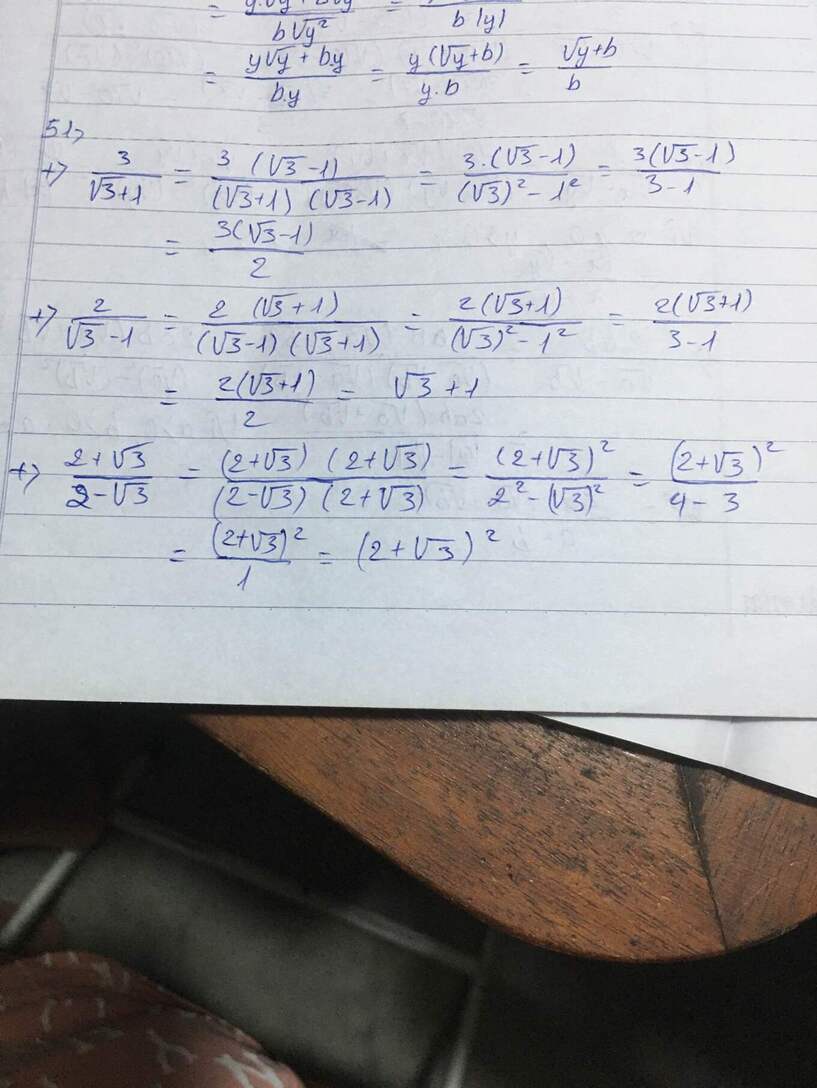 = / b√y² = / b|y|
= y√y + by / b.y = y(√y+b) / y.b = √y+b / b
51>
+> 3 / √3+1 = 3 (√3-1) / (√3+1) (√3-1) = 3.(√3-1) / (√3)² - 1² = 3(√3-1) / 3-1
= 3(√3-1) / 2
+> 2 / √3-1 = 2 (√3+1) / (√3-1) (√3+1) = 2(√3+1) / (√3)² - 1² = 2(√3+1) / 3-1
= 2(√3+1) / 2 = √3+1
+> 2+√3 / 2-√3 = (2+√3) (2+√3) / (2-√3) (2+√3) = (2+√3)² / 2²-(√3)² = (2+√3)² / 4-3
= (2+√3)² / 1 = (2+√3)²